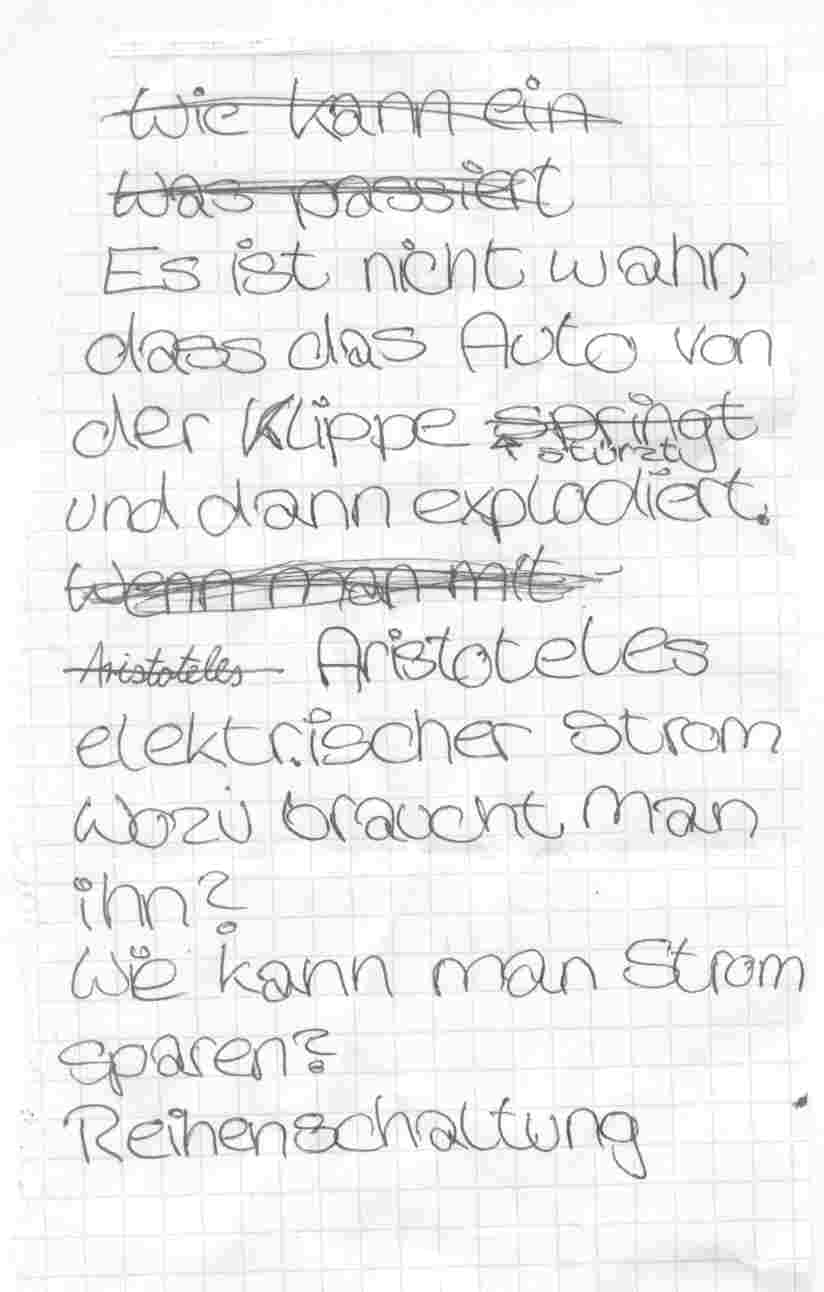 Wie kann ein
Was passiert
Es ist nicht wahr,
dass das Auto von
der Klippe springt
stürzt
und dann explodiert.
Wenn man mit
Aristoteles Aristoteles
elektrischer Strom
Wozu braucht Man
ihn?
Wie kann man Strom
sparen?
Reihenschaltung